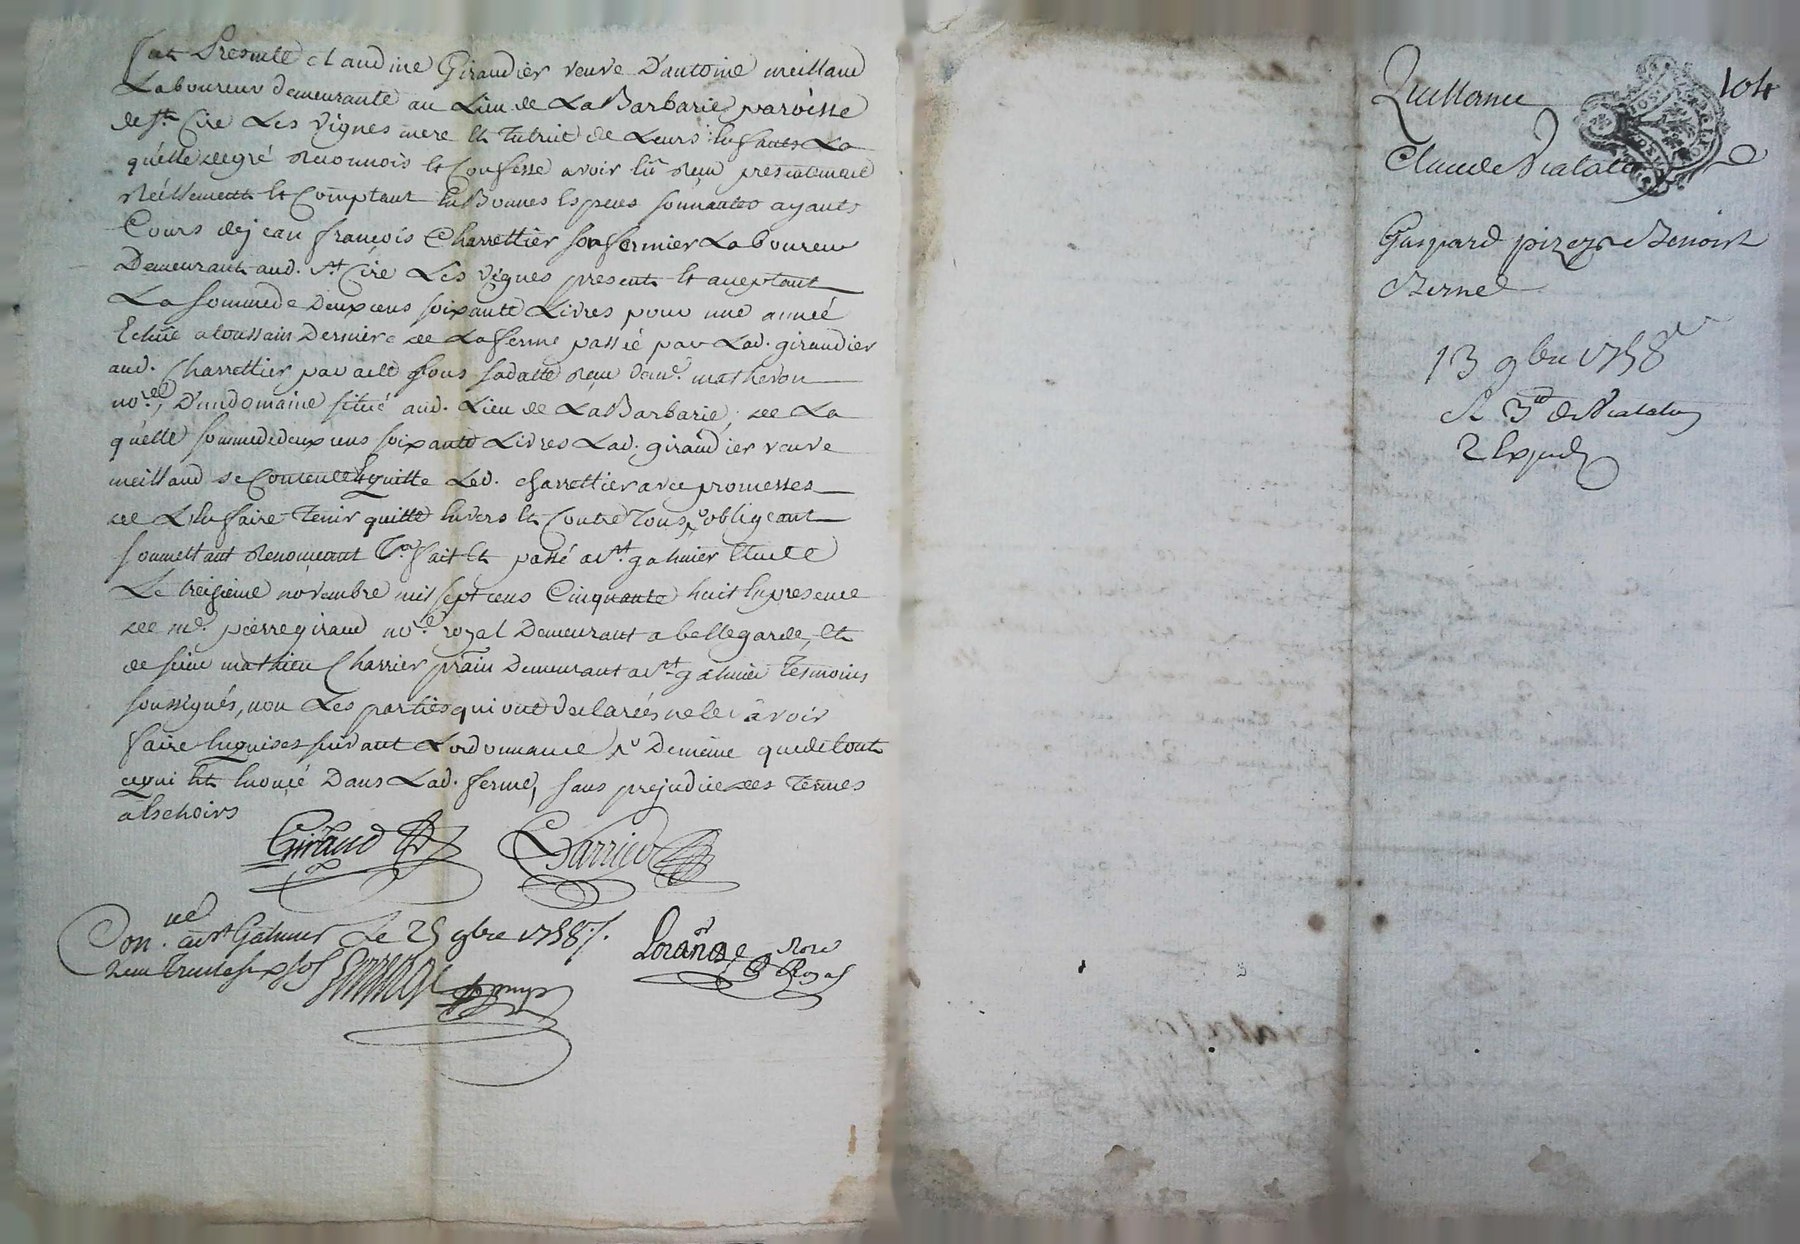 fut Presente claudine Giraudier veuve D'antoine meilland
Laboureur demeurante au Lieu de La Barbarie, paroisse
de st. Cire Les Vignes mere Et Tutrice de Leurs Enfants La
quelle de gré Reconnois Et Confesse avoir Eu Reçu presentement
Réellement Et Comptant En Bonnes Especes sonnantes ayants
Cours de jean françois Charrettier son fermier Laboureur
Demeurant aud. st. Cire Les Vignes present Et aceptant
La somme de Deux cens soixante Livres pour une année
Echue a toussain Derniere de La ferme passée par Lad. giraudier
aud. Charrettier par acte sous sa datte Reçu Dem.e matheron
no.re, D'un domaine situé aud. Lieu de La Barbarie, de La
quelle somme de deux cens soixante Livres Lad. giraudier veuve
meilland se Contente Et quitte Led. charrettier avec promesses
de L'En faire Tenir quitte Envers Et Contre Tous, obligeant
soumettant Renonceant fait Et passé a st. galmier Etude
Le treisieme novembre mil sept cens Cinquante huit En presence
de me. pierre giraud no.re royal Demeurant a bellegarde, Et
de sieur mathieu Charrier Demeurant a st. galmier Tesmoins
soussignés, non Les parties qui ont declarées ne le sçavoir
faire Enquises suivant Lordonnance De même que de tout
ce qui Est Enoncé Dans Lad. ferme, sans prejudice des Termes
a Echoirs
Giraud Charrier
Con.lé a st Galmier Le 25 9bre 1758./.
Reçu Trente six sols
Nore Royal
Quittance 104
Claude Vialaton
Gaspard pirezr Benoist
Bernel
13 9bre 1758
Et 3d de Viatalon
2 Exped